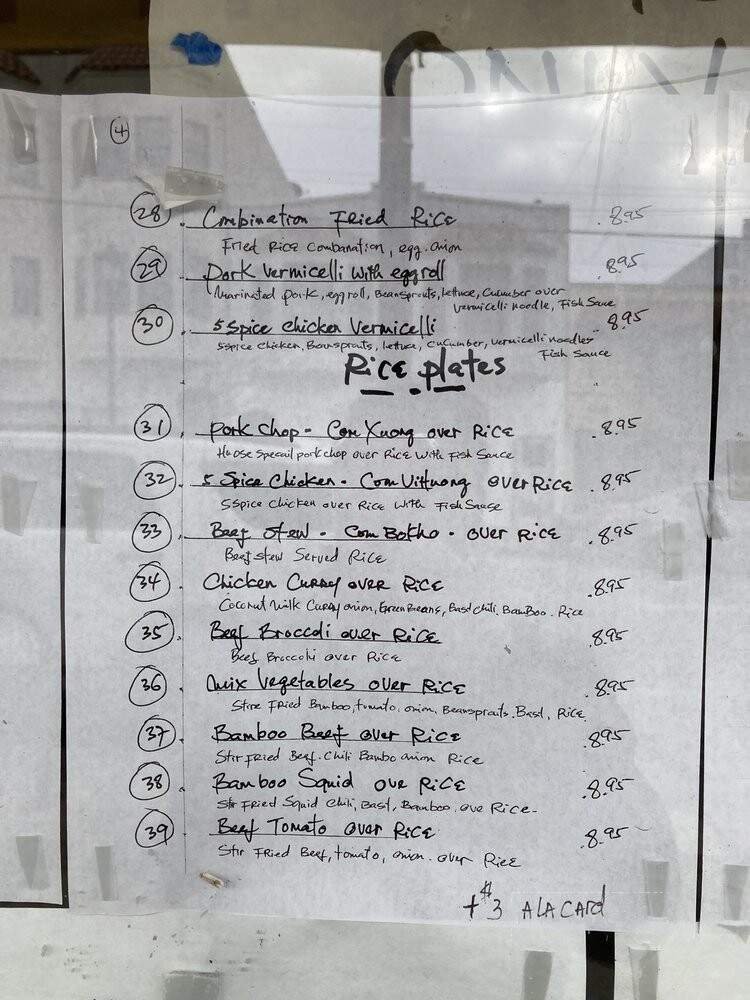 4
28. Combination Fried Rice 8.95
Fried Rice Combanation, egg. onion
29. Pork Vermicelli with eggroll 8.95
Marinated pork, eggroll, Beansprouts, lettuce, Cucumber over
Vermicelli noodle, Fish Sauce
30. 5 Spice Chicken Vermicelli 8.95
5spice Chicken, Beansprouts, lettuce, Cucumber, Vermicelli noodles
Fish Sauce
Rice plates
31. Pork Chop - Com Xuong over Rice 8.95
House Special pork chop over Rice With Fish Sauce
32. 5 Spice Chicken - Com over Rice 8.95
5 Spice Chicken over Rice With Fish Sause
33. Beef Stew - Com Bokho - over Rice 8.95
Beef stew Served Rice
34. Chicken Curry over Rice 8.95
Coconut milk Curry onion, Green Beans, Basd Chili, BamBoo. Rice
35. Beef Broccoli over Rice 8.95
Beef Broccoli over Rice
36. Mix Vegetables over Rice 8.95
Stire Fried Bamboo, tomato, onion, Beansprouts. Basl, Rice
37. Bamboo Beef over Rice 8.95
Stir Fried Beef. Chili Bambo onion Rice
38. Bamboo Squid ove Rice 8.95
Stir Fried Squid Chili, Basl, Bamboo ove Rice-
39. Beef Tomato over Rice 8.95
Stir Fried Beef, tomato, onion. over Rice
+$3 ALACARd